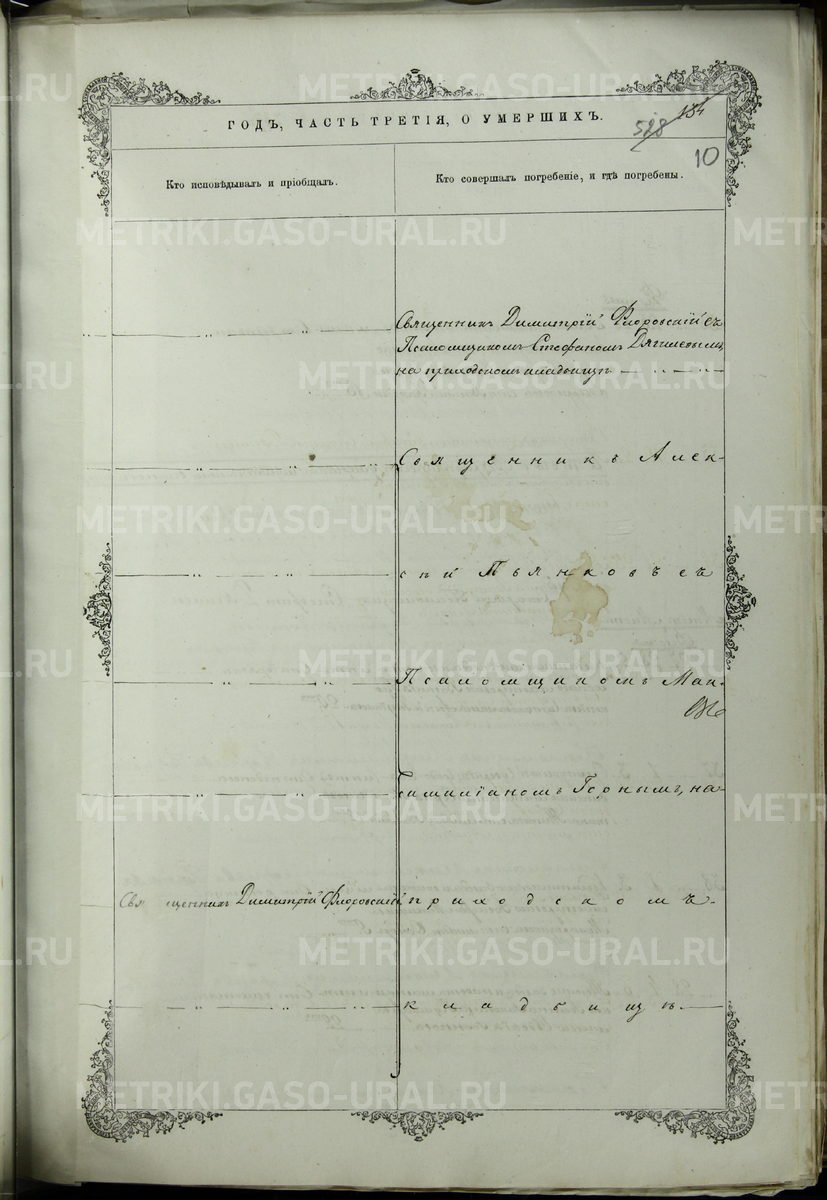 ГОДЪ, ЧАСТЬ ТРЕТІЯ, О УМЕРШИХЪ.
528
184
10
Кто исповѣдывалъ и пріобщалъ.
Кто совершалъ погребеніе, и гдѣ погребены.
Священникъ Димитрій Флоровскій съ
Псаломщикомъ Стефаномъ Дягилевымъ,
на приходскомъ кладбищѣ
Священникъ Алек-
сѣй Пьянковъ съ
Псаломщикомъ Мак-
симиліаномъ Горнымъ, на
Священникъ Димитрій Флоровскій
приходскомъ
кладбищѣ.
METRIKI.GASO-URAL.RU